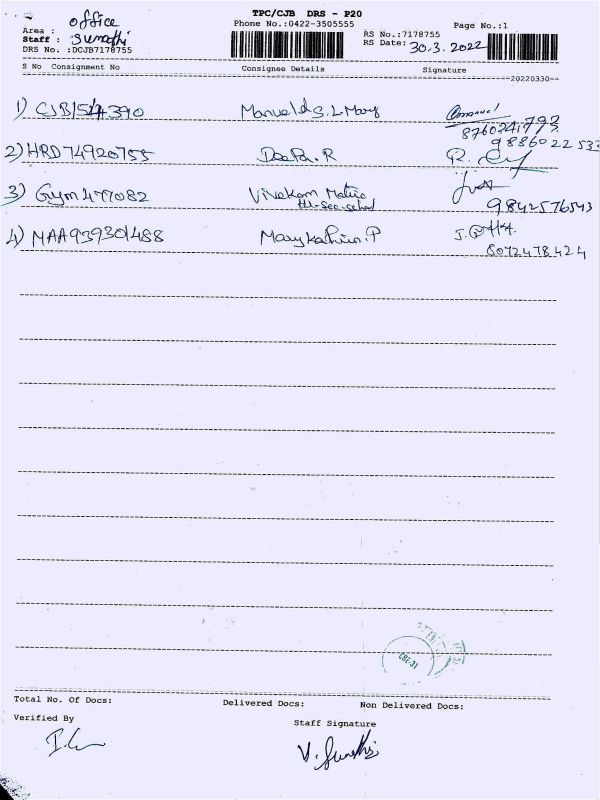 TPC/CJB DRS - P20
Area : office
Phone No.:0422-3505555
Page No.:1
Staff : Sumathi
RS No.:7178755
DRS No. :DCJB7178755
RS Date: 30.3.2022
S No Consignment No Consignee Details Signature
20220330
1) CJB1544390 Manuel S. L Mary
8760241793
2) HRD74920755 Deepa. R 9886022533
3) Gym477082 Vivekam Matric
Hr.Sec.School 9842576543
4) MAA939301488 Mary P
8072478424
CBE-31
Total No. Of Docs: Delivered Docs: Non Delivered Docs:
Verified By Staff Signature